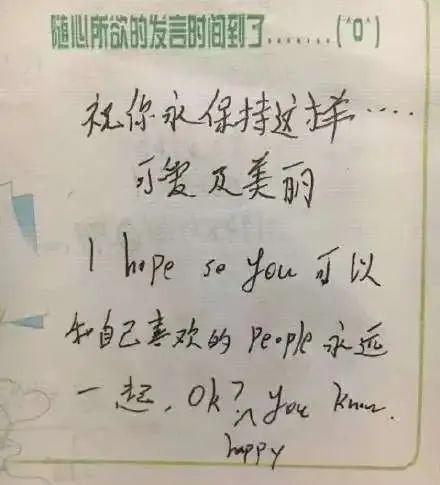 随心所欲的发言时间到了.......(^O^)
祝你永保持这样....
可爱及美丽
I hope so you 可以
和自己喜欢的 people 永远
一起, Ok? you know.
happy